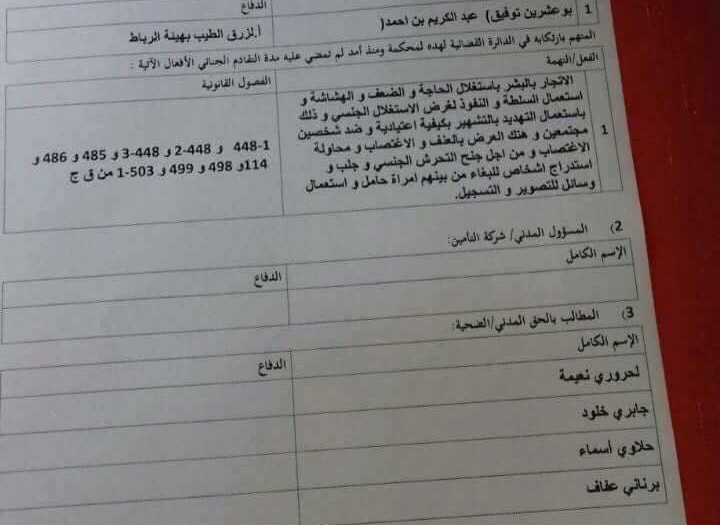 الدفاع
1 بوعشرين توفيق) عبد الكريم بن احمد(
أ.لزرق الطيب بهيئة الرباط
المتهم بارتكابه في الدائرة القضائية لهده لمحكمة ومنذ أمد لم تمضي عليه مدة التقادم الجنائي الأفعال الآتية :
الفعل/التهمة
الفصول القانونية
1
الاتجار بالبشر باستغلال الحاجة و الضعف و الهشاشة و
استعمال السلطة و النفوذ لغرض الاستغلال الجنسي و ذلك
باستعمال التهديد بالتشهير بكيفية اعتيادية و ضد شخصين
مجتمعين و هتك العرض بالعنف و الاغتصاب و محاولة
الاغتصاب و من اجل جنح التحرش الجنسي و جلب و
استدراج اشخاص للبغاء من بينهم امراة حامل و استعمال
وسائل للتصوير و التسجيل.
448-1 و 448-2 و 448-3 و 485 و 486 و
114و 498 و 499 و 503-1 من ق ج
2) المسؤول المدني/ شركة التأمين:
الإسم الكامل
الدفاع
3) المطالب بالحق المدني/الضحية:
الإسم الكامل
الدفاع
لحروري نعيمة
جابري خلود
حلاوي أسماء
برناني عفاف